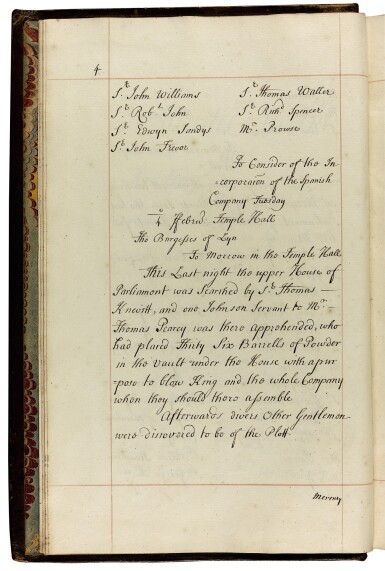 4
Sr. John Williams Sr. Thomas Waller
Sr. Robt. John Sr. Richd. Spencer
Sr. Edwyn Sandys Mr. Prowse
Sr. John Trevor
To Consider of the In-
-corporacion of the Spanish
Company Tuesday
4o ffebru: Temple Hall
The Burgesses of Lyn
To Morrow in the Temple Hall
This Last night the upper House of
Parliament was Searched by Sr. Thomas
Knevitt, and one Johnson Servant to Mr.
Thomas Peircy was there apprehended, who
had placed Thirty Six Barrells of Powder
in the vault under the House with a pur
pose to blow King and the whole Company
when they should there assemble
Afterwards divers Other Gentlemen
were discovered to be of the Plott.